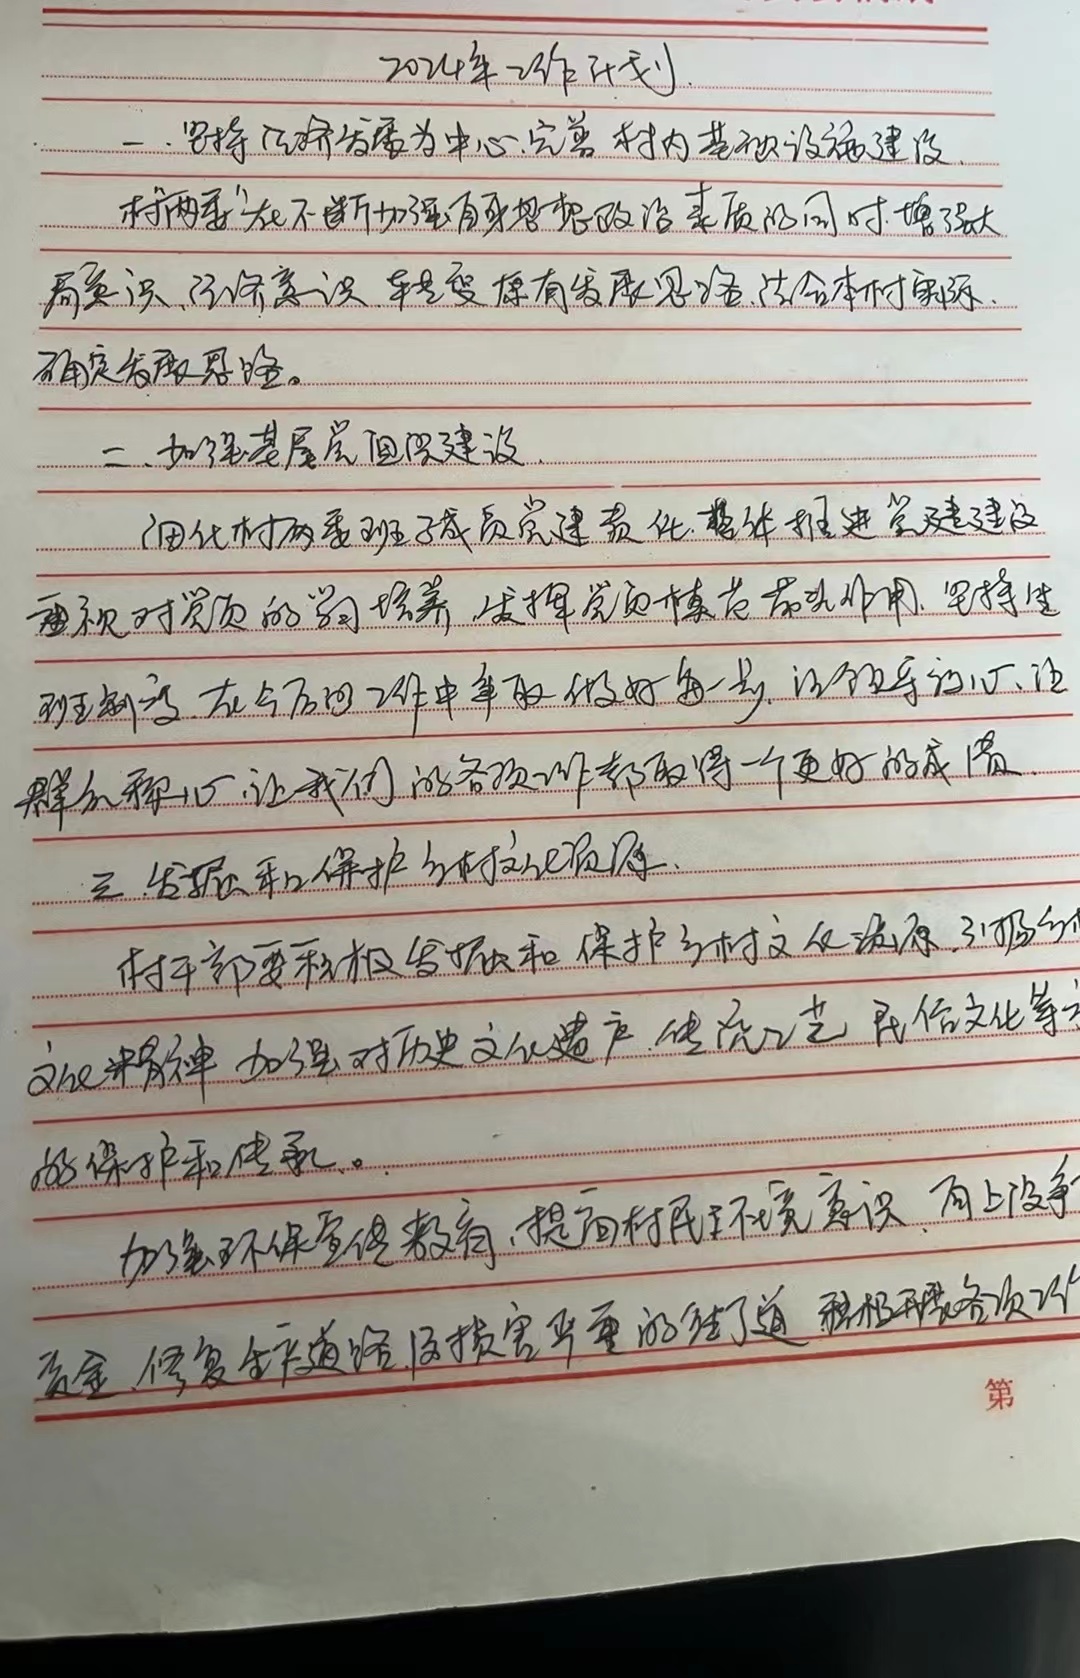 2024年工作计划
一、坚持经济发展为中心、完善村内基础设施建设、
村“两委”在不断加强自身思想政治素质的同时、增强大
局意识、经济意识 转变原有发展思路、结合本村实际、
确定发展思路。
二、加强基层党组织建设、
细化村两委班子成员党建责任、整体推进党建建设
重视对党员的学习培养、发挥党员模范带头作用、坚持坐
班制度、在今后的工作中争取做好每一步、让领导放心、让
群众称心、让我们的各项工作都取得一个更好的成绩、
三、发掘和保护乡村文化资源、
村干部要积极发掘和保护乡村文化资源、引扬乡村
文化精神 加强对历史文化遗产、传统工艺 民俗文化等
的保护和传承。
加强环保宣传教育、提高村民环境意识、向上级争
资金、修复生产道路、及损害严重的街道 积极开展各项工作
第